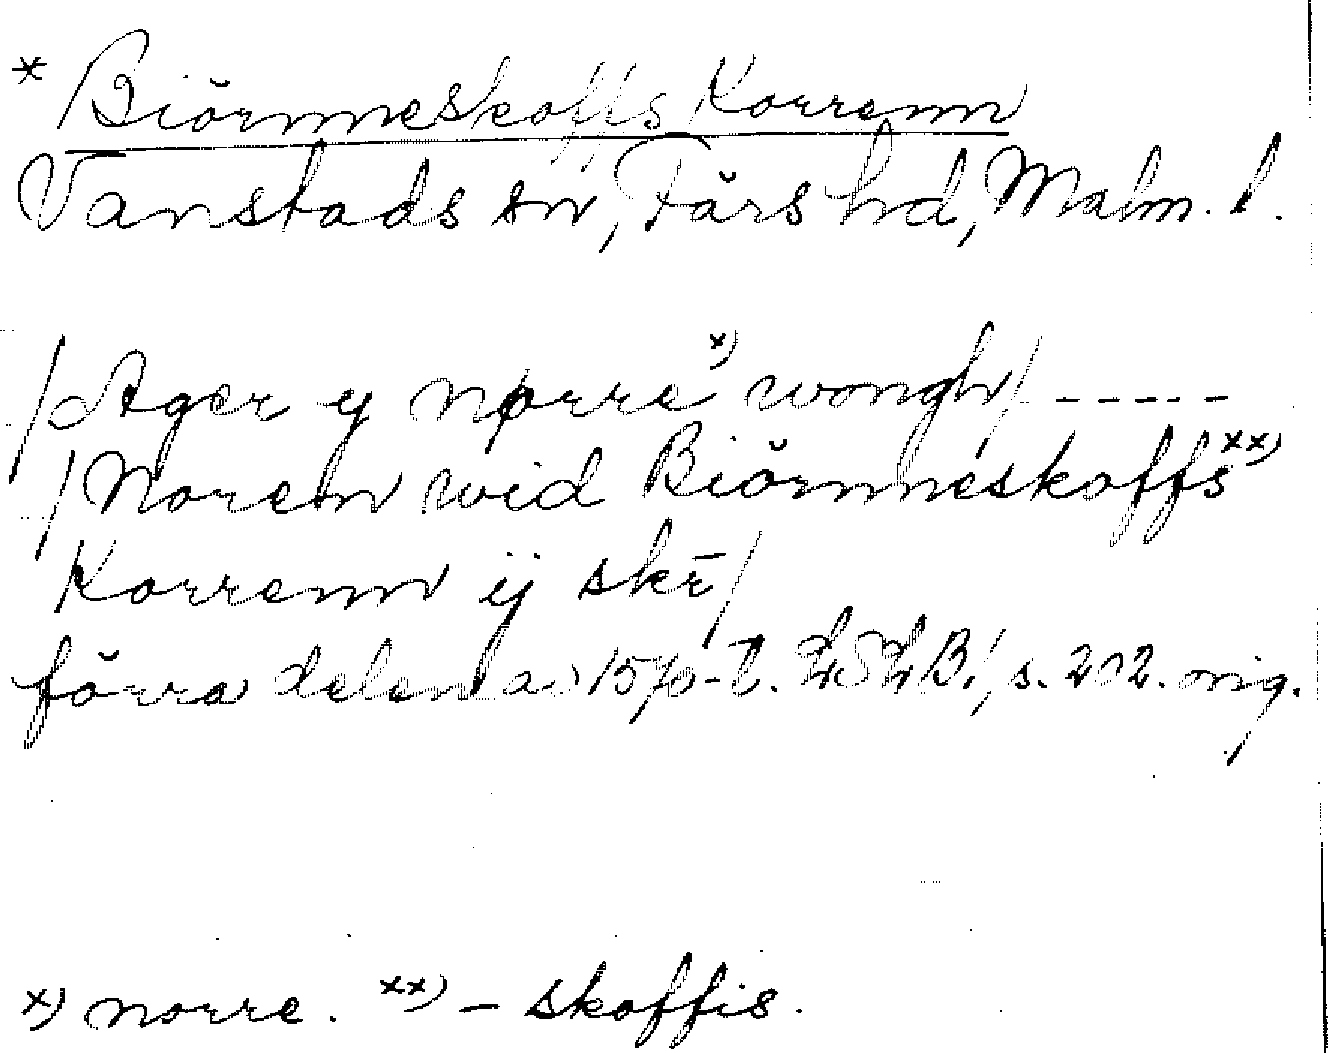 * Biörnneskoffs Korrenn
Vanstads sn, Färs hd, Malm. l.
/Ager y nørre x) wongh/ -----
/Noren wid Biörnneskoffs xx)
Korrenn ij skr̄/
förra delen a 1570-t. LSLB, s. 202. orig.
x) norre. xx) - skoffis.